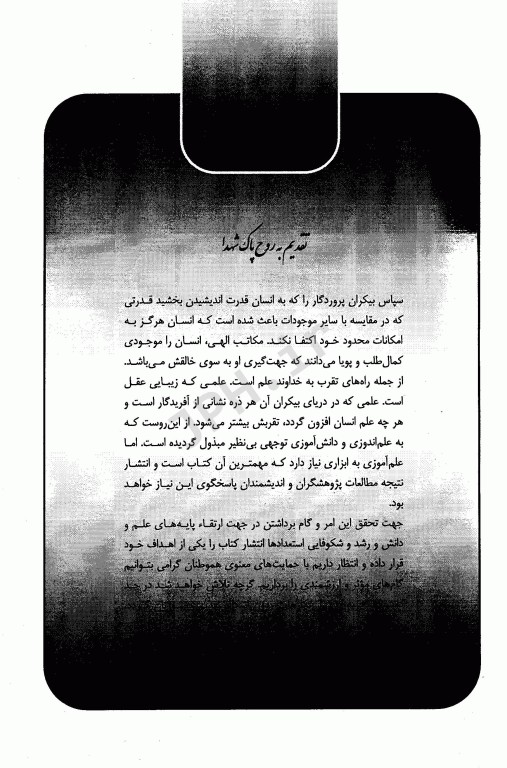 تقدیم به روح پاک شهدا
سپاس بیکران پروردگار را که به انسان قدرت اندیشیدن بخشید قدرتی
که در مقایسه با سایر موجودات باعث شده است که انسان هرگز به
امکانات محدود خود اکتفا نکند. مکاتب الهی، انسان را موجودی
کمال‌طلب و پویا می‌دانند که جهت‌گیری او به سوی خالقش می‌باشد.
از جمله راه‌های تقرب به خداوند علم است. علمی که زیبایی عقل
است. علمی که در دریای بیکران آن هر ذره نشانی از آفریدگار است و
هر چه علم انسان افزون گردد، تقربش بیشتر می‌شود. از این‌روست که
به علم‌اندوزی و دانش‌آموزی توجهی بی‌نظیر مبذول گردیده است. اما
علم‌آموزی به ابزاری نیاز دارد که مهمترین آن کتاب است و انتشار
نتیجه مطالعات پژوهشگران و اندیشمندان پاسخگوی این نیاز خواهد
بود.
جهت تحقق این امر و گام برداشتن در جهت ارتقاء پایه‌های علم و
دانش و رشد و شکوفایی استعدادها انتشار کتاب را یکی از اهداف خود
قرار داده و انتظار داریم با حمایت‌های معنوی هموطنان گرامی بتوانیم
گام‌های مؤثر و ارزشمندی را برداریم. گرچه تلاش خواهد شد در حد